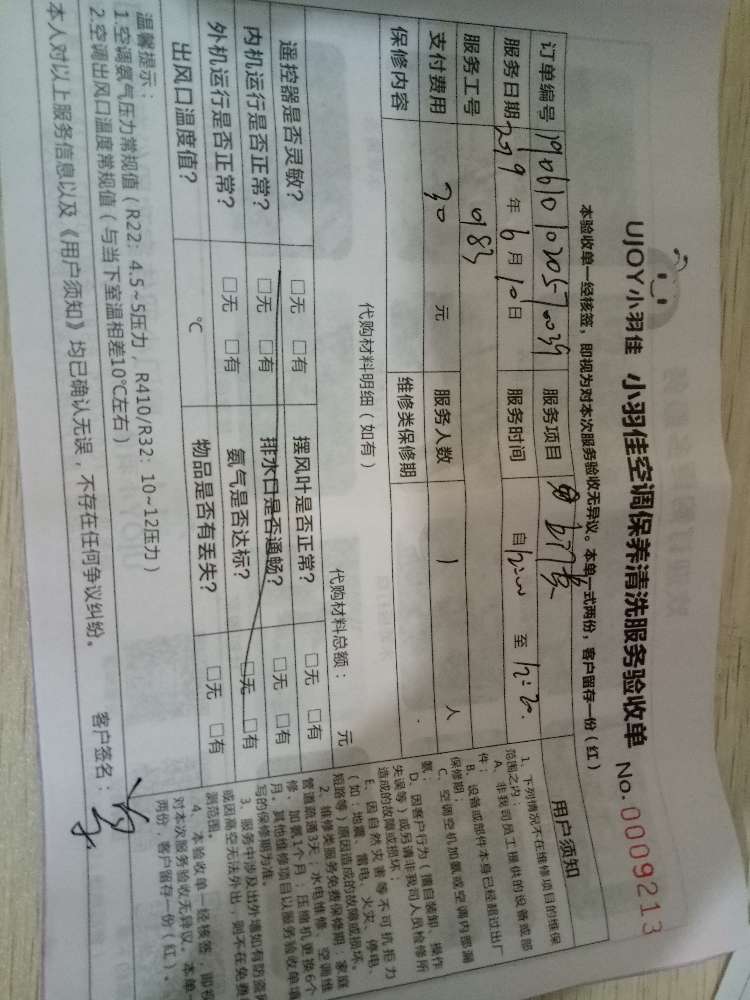 UJOY小羽佳 小羽佳空调保养清洗服务验收单 No. 0009213
本验收单一经核签，即视为对本次服务验收无异议。本单一式两份，客户留存一份（红）
订单编号 服务项目
服务日期 2019 年 6 月 10 日 服务时间 自 至
服务工号 0183
支付费用 30 元 服务人数 1 人
保修内容 维修类保修期
代购材料明细（如有） 代购材料总额： 元
遥控器是否灵敏？ □无 □有 摆风叶是否正常？ □无 □有
内机运行是否正常？ □无 □有 排水口是否通畅？ □无 □有
外机运行是否正常？ □无 □有 氨气是否达标？ □无 □有
出风口温度值？ ℃ 物品是否有丢失？ □无 □有
温馨提示：
1.空调氨气压力常规值（R22：4.5~5压力，R410/R32：10~12压力）
2.空调出风口温度常规值（与当下室温相差10℃左右）
本人对以上服务信息以及《用户须知》均已确认无误，不存在任何争议纠纷。
客户签名：
用户须知
1、下列情况不在维修项目的维保
范围之内：
A、非我司员工提供的设备或部
件；
B、设备或部件本身已经超过出厂
保修期；
C、空调空机加氨或空调内部漏
氨；
D、因客户行为（擅自装卸、操作
失误等）或另请非我司人员检修所
造成的故障或损坏；
E、因自然灾害等不可抗拒力
（如：地震、雷电、火灾、停电、
短路等）原因造成的故障或损坏。
2、维修类服务免费保修期：家庭
管道疏通3天；水电维修、空调维
修、加氨1个月；压缩机更换6个
月。其他维修项目以服务验收单填
写的保修期为准。
3、服务中涉及出外墙如有防盗网
或因高空无法外出，则不在免费
测范围。
4、本验收单一经核签，即视
对本次服务验收无异议。本单一
两份，客户留存一份（红）。